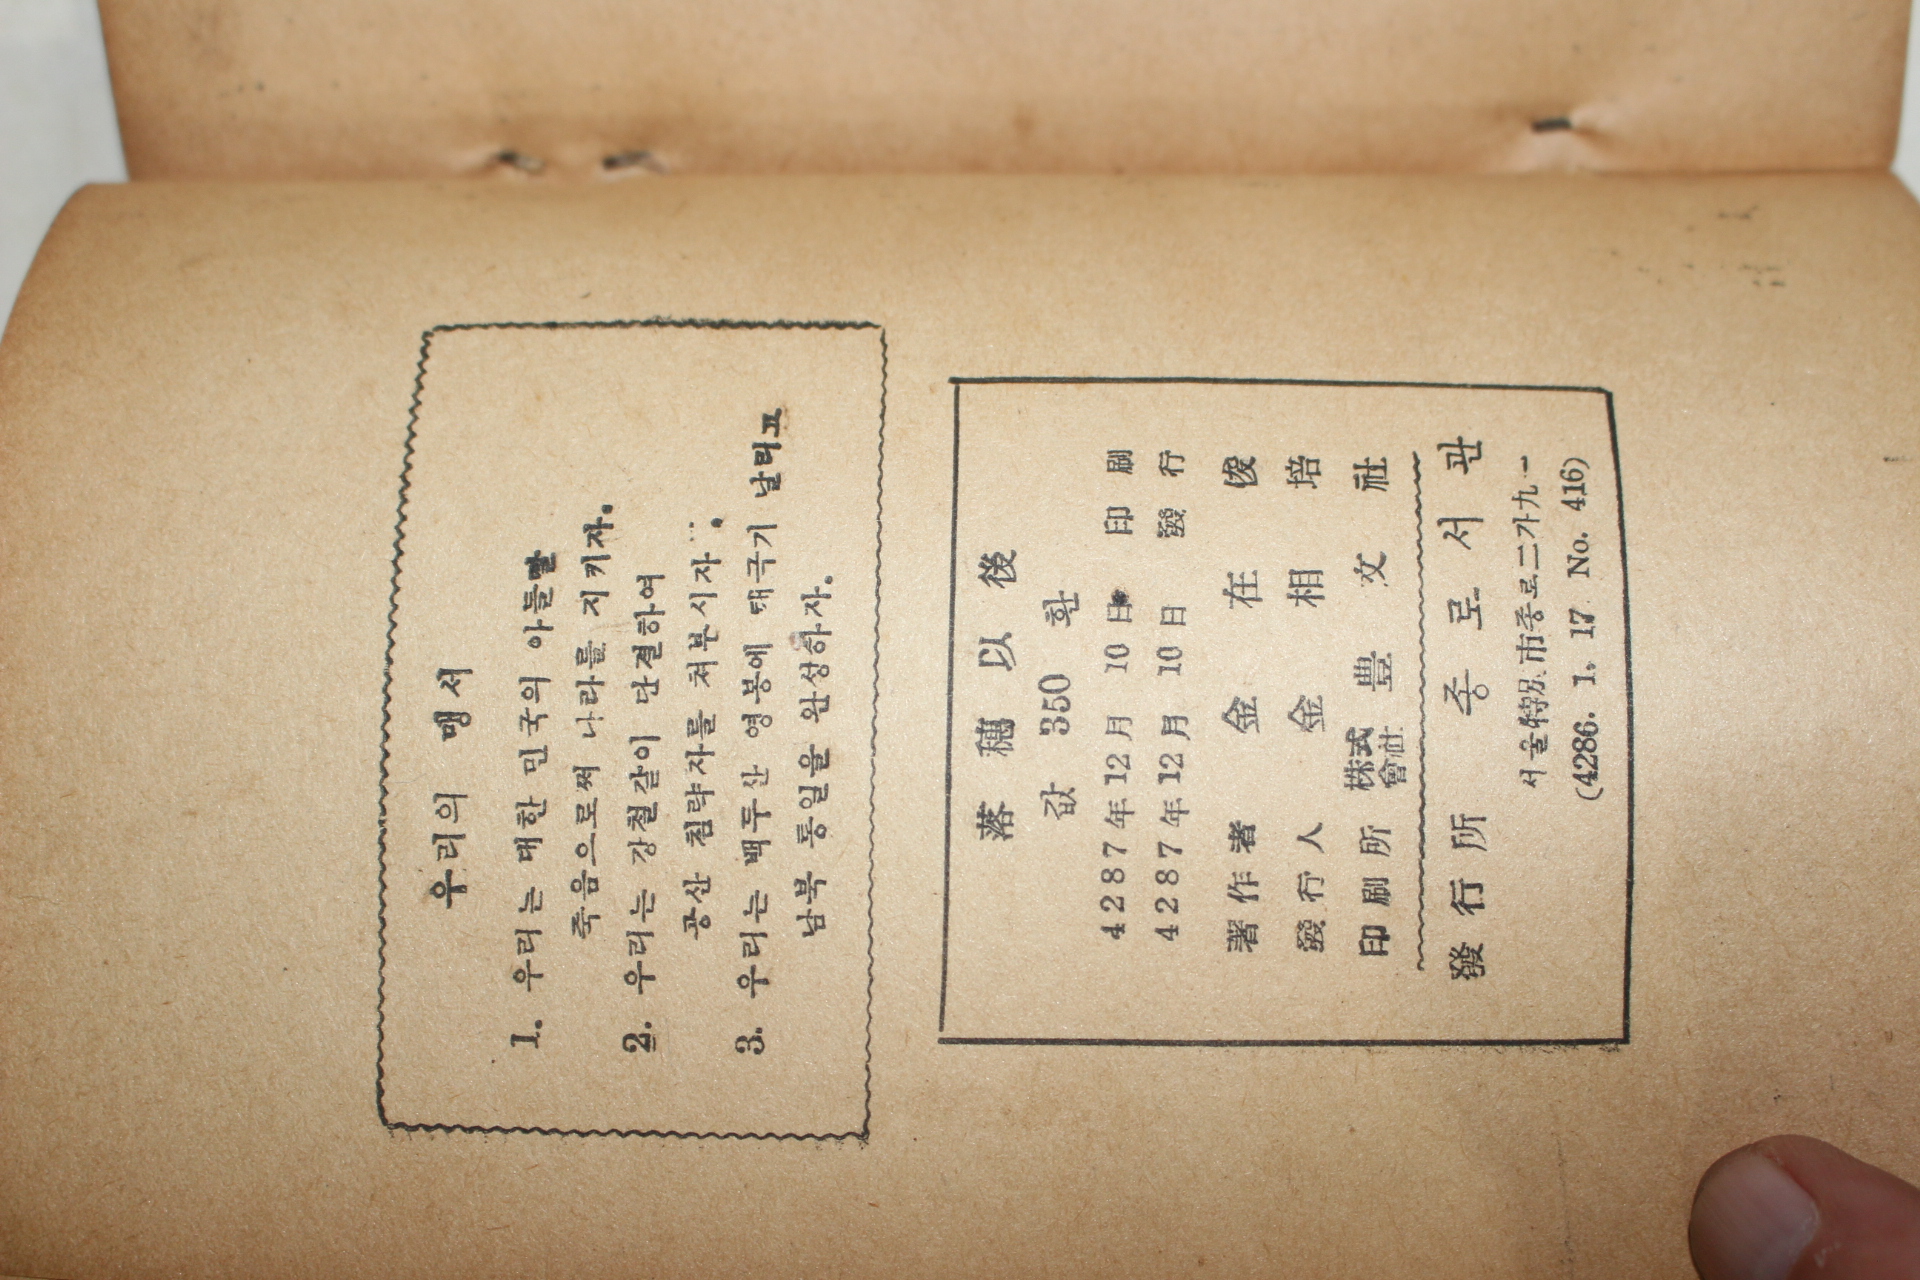 우리의 맹서
1. 우리는 대한 민국의 아들딸
죽음으로써 나라를 지키자.
2. 우리는 강철같이 단결하여
공산 침략자를 쳐부시자.
3. 우리는 백두산 영봉에 태극기 날리고
남북 통일을 완성하자.
落穗以後
값 350 환
4287年 12月 10日 印刷
4287年 12月 10日 發行
著作者 金在俊
發行人 金相培
印刷所 株式會社 豊文社
發行所 종로서관
서울特別市종로二가九一
(4286. 1. 17 No. 416)